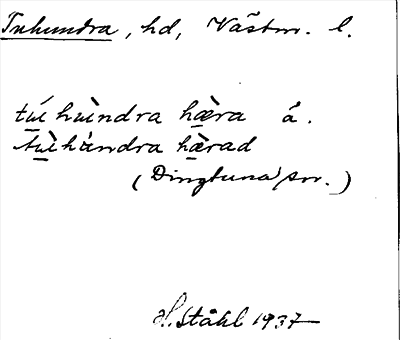 Tuhundra, hd, Västm. l.
túhùndra hæ̀ra å.
tùhúndra hæ̀rad
(Dingtuna sn.)
H. Ståhl 1937